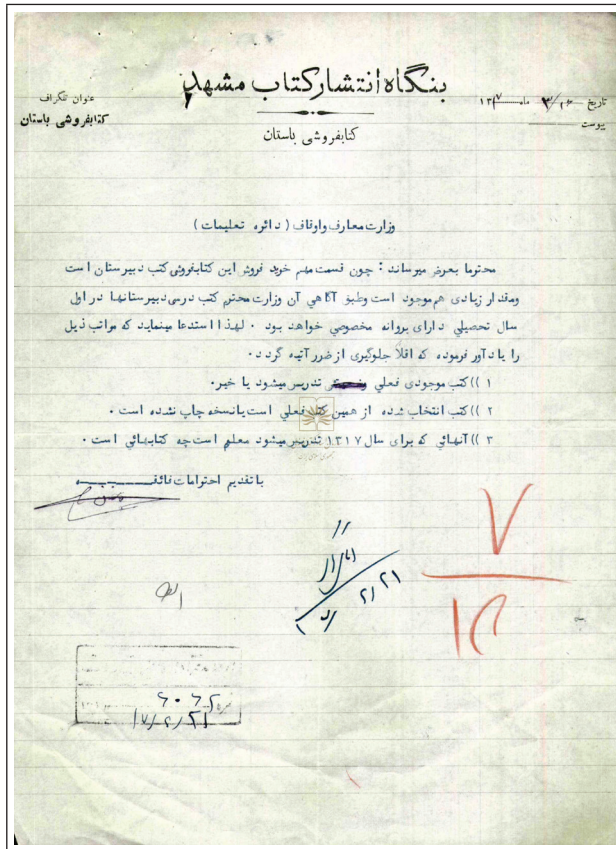 بنگاه انتشار کتاب مشهد
کتابفروشی باستان
تاریخ ۲۶/۳ ماه ۱۳۱۷
پیوست
عنوان تلگراف
کتابفروشی باستان
وزارت معارف واوقاف ( دائره تعلیمات )
محترما بعرض میرساند : چون قسمت مهم خرید فروش این کتابفروشی کتب دبیرستان است
ومقدار زیادی هم موجود است وطبق آگاهی آن وزارت محترم کتب درسی دبیرستانها در اول
سال تحصیلی دارای پروانه مخصوصی خواهد بود ۰ لهذا استدعا مینماید که مراتب ذیل
را یادآور فرموده که اقلاً جلوگیری از ضرر آتیه گردد۰
۱ )) کتب موجودی فعلی تدریس میشود یا خیر۰
۲ )) کتب انتخاب شده از همین کتب فعلی است یانسخه چاپ نشده است ۰
۳ )) آنهائی که برای سال ۱۳۱۷ تدریس میشود معلم است چه کتابهائی است ۰
با تقدیم احترامات فائقه
۷